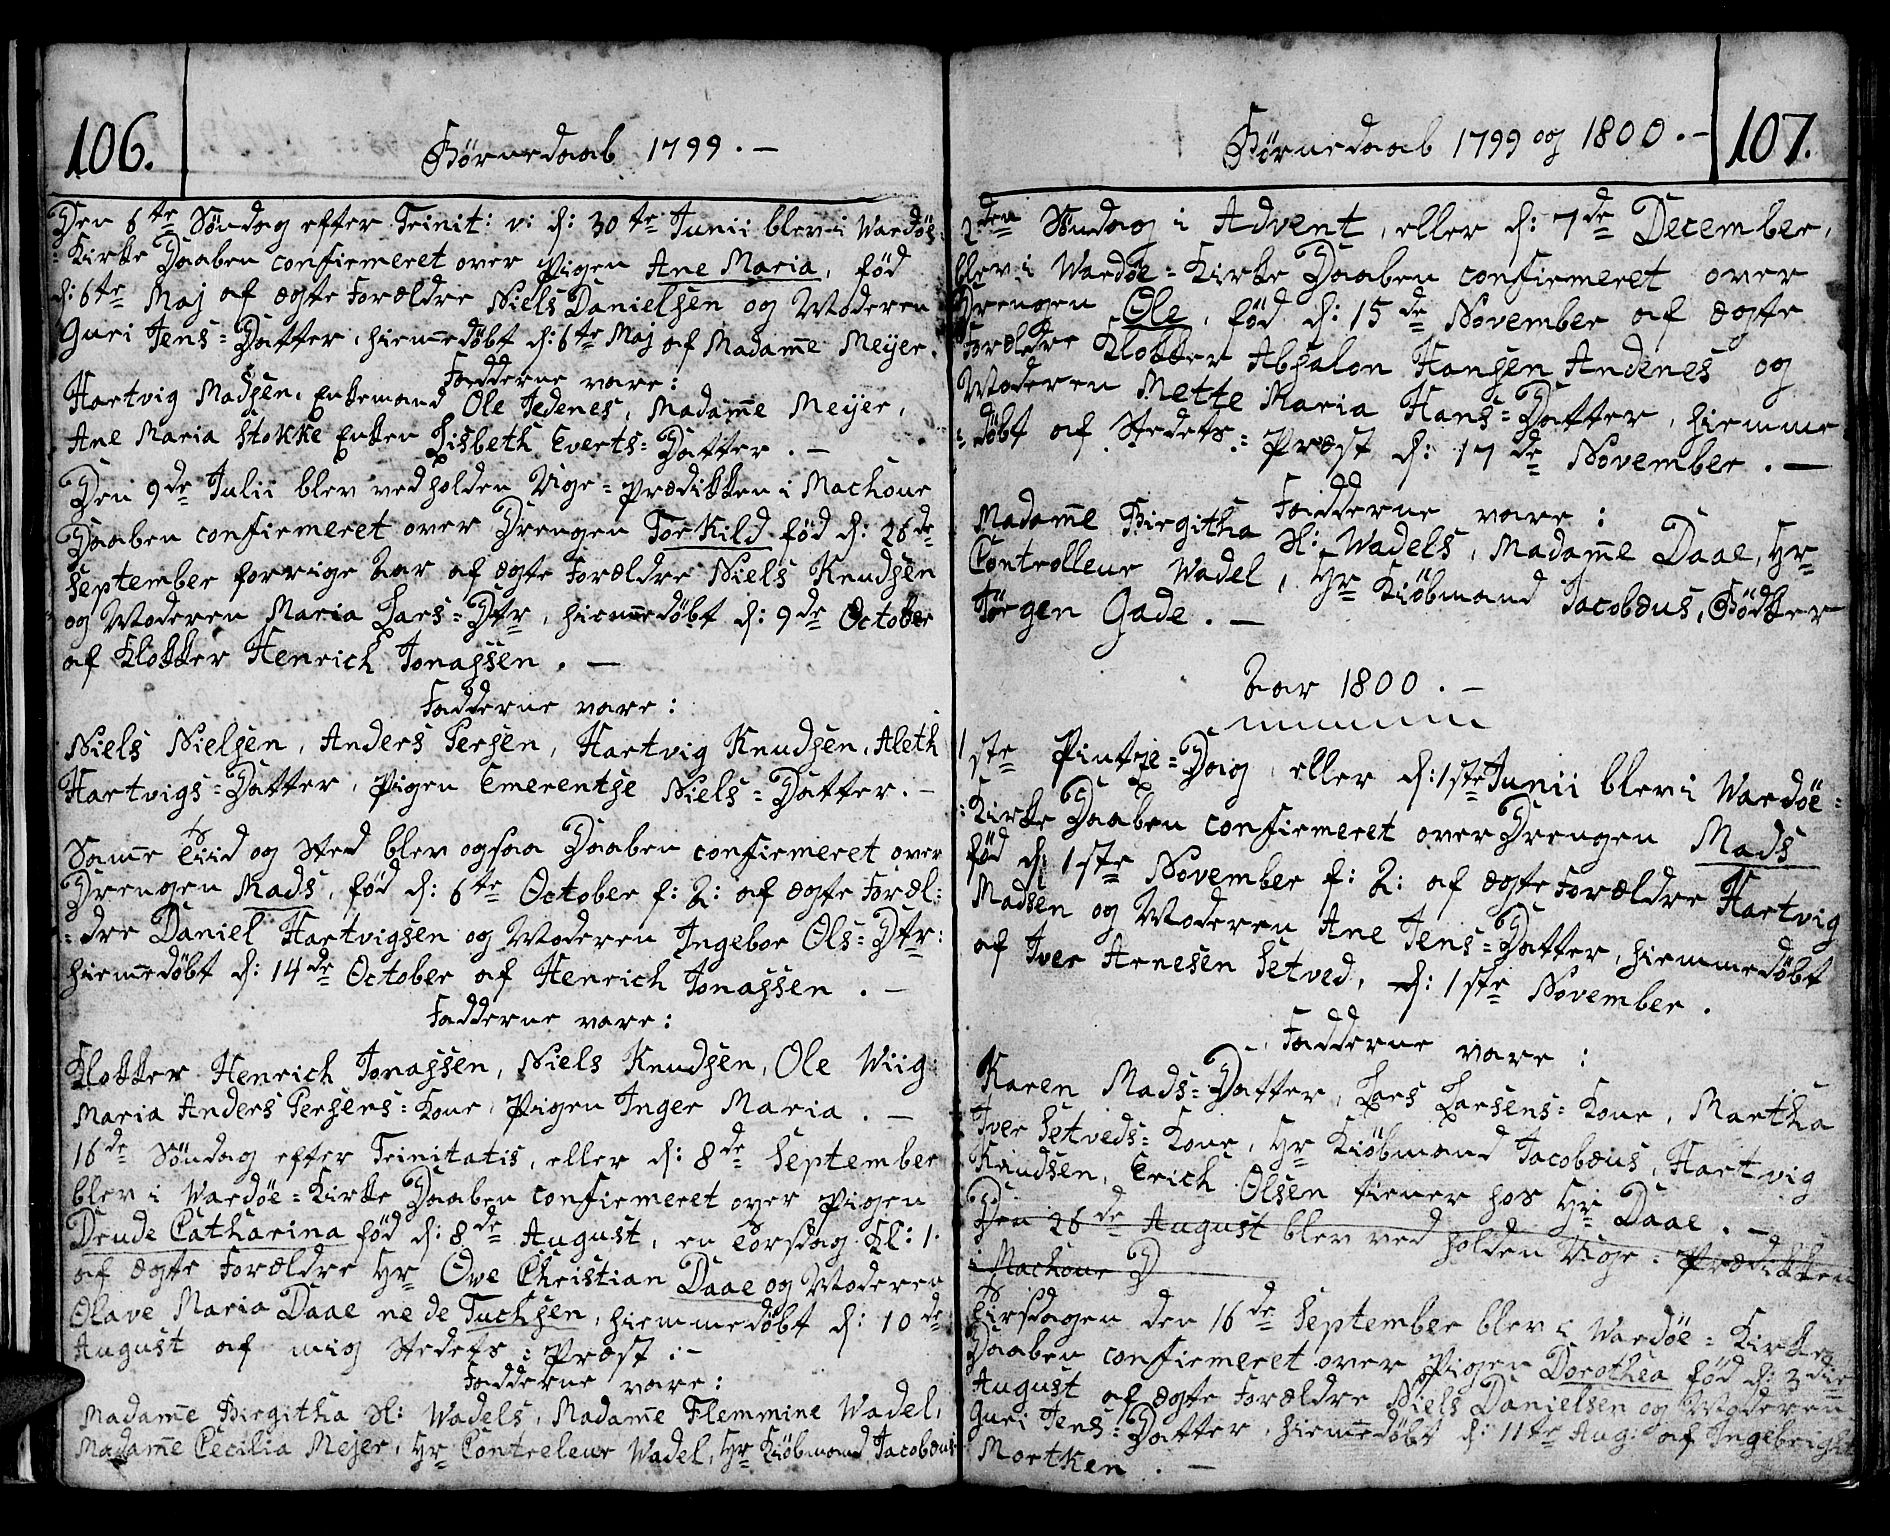 106.
Børnedaab 1799. -
Den 6te Søndag efter Trinit: v: d: 30te Junii blev i Wardøe
=Kirke Daaben confirmeret over Pigen Ane Maria, fød
d: 6te Maj af ægte Forældre Niels Danielsen og Moderen
Guri Jens=Datter, hiemedøbt d: 6te Maj af Madame Meyer.
Fadderne vare:
Hartvig Madsen, Enkemand Ole Jedenes, Madame Meyer,
Ane Maria Stokke Enken Lisbeth Everts=Datter. -
Den 9de Julii blev ved holden Uge=prædikken i Machour
Daaben confirmeret over Drengen Torkild fød d: 26de
September forrige Aar af ægte Forældre Niels Knudsen
og Moderen Maria Lars=Dtr, hiemedøbt d: 9de October
af Klokker Henrich Jonassen. -
Fadderne vare:
Niels Nielsen, Anders Persen, Hartvig Knudsen, Aleth
Hartvigs=Datter, Pigen Emerentse Niels=Datter. -
Same Tiid og Sted blev ogsaa Daaben confirmeret over
Drengen Mads, fød d: 6te October f: A: af ægte Foræl=
=dre Daniel Hartvigsen og Moderen Ingebor Ols=Dtr:
hiemedøbt d: 14de October af Henrich Jonassen. -
Fadderne vare:
Klokker Henrich Jonassen, Niels Knudsen, Ole Wiig
Maria Anders Persens=Kone, Pigen Inger Maria. -
16de Søndag efter Trinitatis, eller d: 8de September
blev i Wardøe=Kirke Daaben confirmeret over Pigen
Drude Catharina fød d: 8de August, en Torsdag Kl: 1.
af ægte Forældre Hr Ove Christian Daae og Moderen
Olave Maria Daae ne de Tuchsen, hiemmedøbt d: 10de
August af mig Stedets=Præst :-
Fadderne vare:
Madame Birgitha Sl: Wadels, Madame Flemmine Wadel,
Madame Cecilia Mejer, Hr Contreleur Wadel, Hr Kiøbmand Jacobæus
107.
Børnedaab 1799 og 1800. -
2den Søndag i Advent, eller d: 7de December,
blev i Wardøe=Kirke Daaben confirmeret over
Drengen Ole, fød d: 15de November af ægte
Forældre Klokker Absalon Hansen Andenes og
Moderen Mette Maria Hans=Datter, hiemme
=døbt af Stedets=Præst d: 17de November. -
Fadderne vare:
Madame Birgitha Sl: Wadels, Madame Daae, Hr
Controlleur Wadel, Hr Kiöbmand Jacobæus, Bødker
Jørgen Gade. -
Aar 1800. -
1ste Pintze=Dag, eller d: 1ste Junii blev i Wardöe=
=Kirke Daaben confirmeret over Drengen Mads
fød d: 1ste November f: A: af ægte Forældre Hartvig
Madsen og Moderen Ane Jens=Datter, hiemmedøbt
af Iver Arnesen Setved, d: 1ste November.
Fadderne vare:
Karen Mads=Datter, Lars Larsens=Kone, Martha
Iver Setveds=Kone, Hr Kiöbmand Jacobæus, Hartvig
Knudsen, Erich Olsen tiener hos Hr Daae. -
Den 26de August blev ved holden Uge=Prædikken
i Machour D
Tirsdagen den 16de September blev i Wardøe=Kirke
Daaben confirmeret over Pigen Dorothea fød d: 3die
August af ægte Forældre Niels Danielsen og Moderen
Guri Jens=Datter, hiemedøbt d: 11te Aug: af Ingebright
Mortken. -